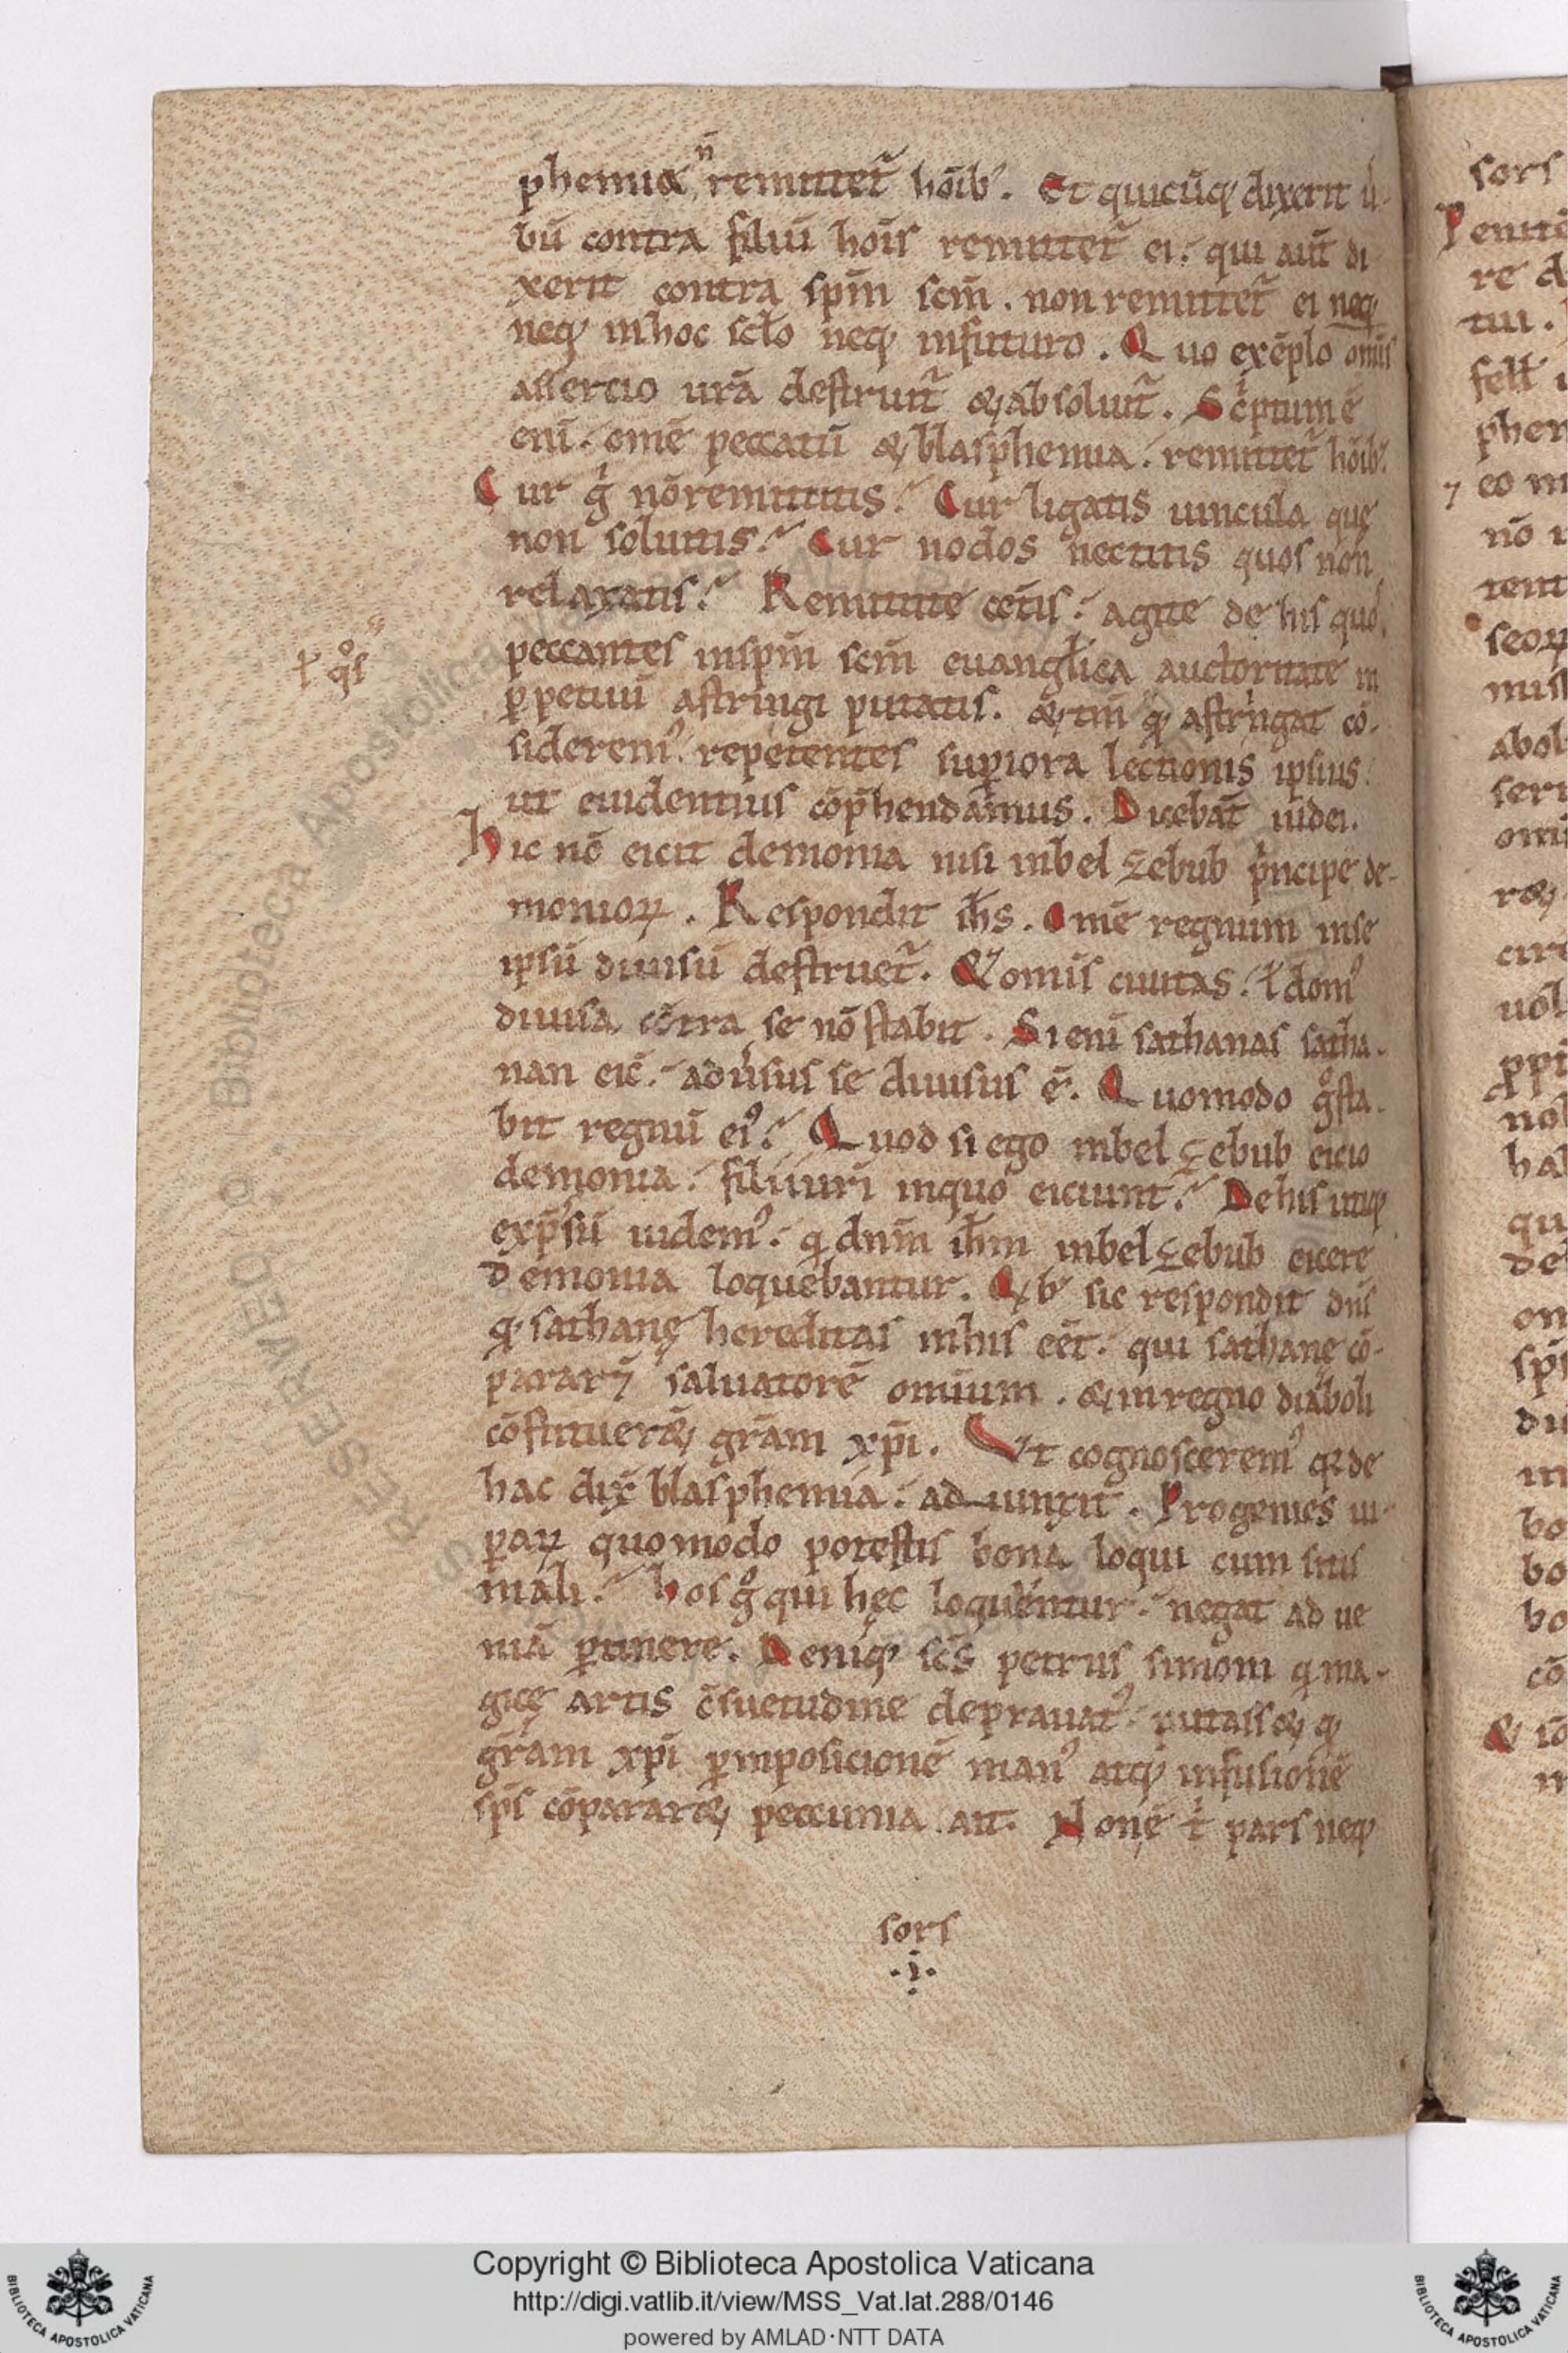 phemia n̄ remittet᷑ hōib᷒. Et quicūq; dixerit ū-
bū contra filiū hoīs remittet᷑ ei. qui aūt di
xerit contra sp̄m sc̄m. non remittet᷑ ei neq;
neq; inhoc sc̄lo neq; infuturo. Quo exēplo om̄is
assercio ur̄a destruit᷑ & absoluit᷑. Sc̓ptum ē
eni̅. om̄e peccatū & blasphemia. remittet᷑ hōib᷒.
Cur g̓ nōremittitis? Cur ligatis uincula quę
non soluitis? Cur nodos nectitis quos non
relaxatis? Remittite cet̄is. agite de his quos
peccantes insp̄m sc̄m euangl̄ica auctoritate in
ꝑpetuū astringi putatis. & tm̄ q; astringat cō-
siderem᷒. repetentes suꝑiora lectionis ipsius.
ut euidentius cōp̄hendamus. Dicebāt iudei.
Hic nō eicit demonia nisi inbelzebub p̓ncipe de-
monioꝝ. Respondit ih̄s. Om̄e regnum inse
ipsū diuisū destruet᷑. & om̄is ciuitas. ł dom᷒
diuisa cōtra se nō stabit. Si eni̅ sathanas satha-
nan eic̄. adu̓sus se diuisus ē. Quomodo g° sta-
bit regnū ei᷒? Quod si ego inbelzebub eicio
demonia. filii uri̅ inquo eiciunt? Dehis utiq;
exp̄sū uidem᷒. q dn̄m ih̄m inbelzebub eicere
demonia loquebantur. & b᷒ sic respondit dn̄s
q; sathanę hereditas inhis eēt. qui sathanę cō-
parar̄ saluatorē omiūm. & inregno diaboli
cōstituer& grām xp̄i. Ut cognoscerem᷒ q;de
hac dix̄ blasphemia. ad iunxit. Progenies ui-
ꝑaꝝ quomodo potestis bona loqui cum sitis
mali? hos g° qui hęc loquentur. negat ad ue
niā ꝑtinere. Deniq; sc̄s petrus simoni q ma-
gicę artis c̄suetudine deprauat᷒. putass& q;
grām xp̄i ꝑinposicionē man᷒ atq; infusionē
sp̄s cōparar& peccunia ait. Non ē t̓ pars neq;
ł q°s
sors
.i.
sors
Penite
re d
tui.
fell
phem
7 eo in
nō
tent
seoꝝ
mis
abol
seri
omi
r&
circ
uol
ppi
nol
hal
qu
de
om
spi
du
in
bo
bo
bo
cō
&
Copyright © Biblioteca Apostolica Vaticana
http://digi.vatlib.it/view/MSS_Vat.lat.288/0146
powered by AMLAD·NTT DATA
BIBLIOTECA APOSTOLICA VATICANA
BIBLIOTECA APOSTOLICA VATICANA